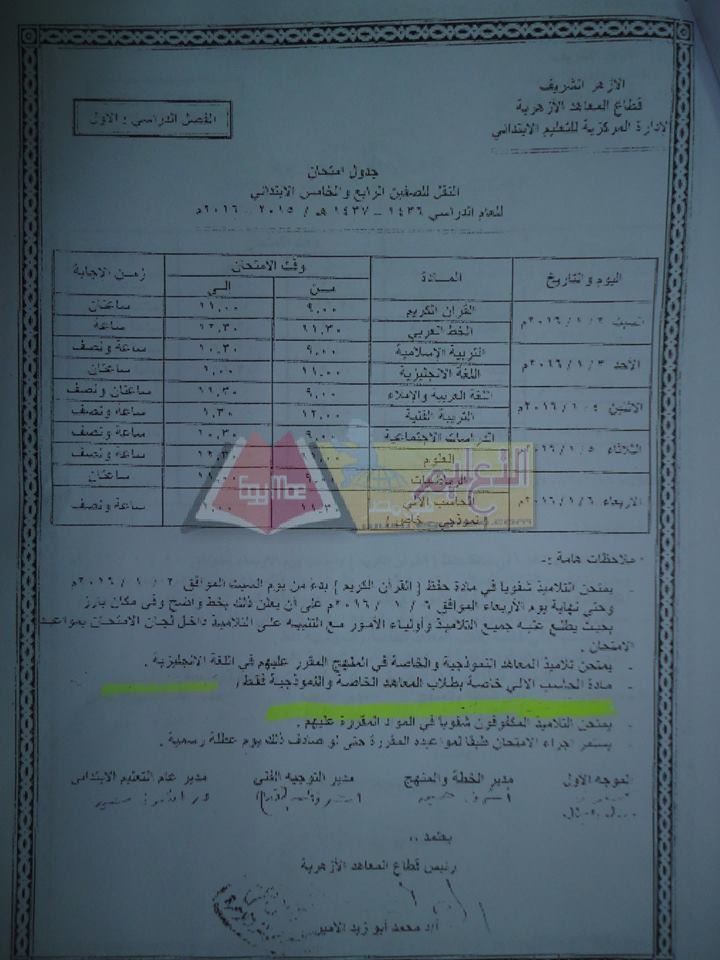 الأزهر الشريف
قطاع المعاهد الأزهرية
الادارة المركزية للتعليم الابتدائي
الفصل الدراسي : الأول
جدول امتحان
النقل للصفين الرابع والخامس الابتدائي
للعام الدراسي ١٤٣٦ - ١٤٣٧ هـ / ٢٠١٥ - ٢٠١٦م
اليوم والتاريخ المادة وقت الامتحان زمن الاجابة
من الى
السبت ٢ / ١ / ٢٠١٦م القرآن الكريم ٩,٠٠ ١١,٠٠ ساعتان
الخط العربي ١١,٣٠ ١٢,٣٠ ساعة
الأحد ٣ / ١ / ٢٠١٦م التربية الإسلامية ٩,٠٠ ١٠,٣٠ ساعة ونصف
اللغة الانجليزية ١١,٠٠ ١,٠٠ ساعتان
الاثنين ٤ / ١ / ٢٠١٦م اللغة العربية والإملاء ٩,٠٠ ١١,٣٠ ساعتان ونصف
التربية الفنية ١٢,٠٠ ١,٣٠ ساعة ونصف
الثلاثاء ٥ / ١ / ٢٠١٦م الدراسات الاجتماعية ٩,٠٠ ١٠,٣٠ ساعة ونصف
العلوم ١٢,٣٠ ساعة ونصف
الأربعاء ٦ / ١ / ٢٠١٦م الرياضيات ٩,٠٠ ١١,٠٠ ساعتان
الحاسب الآلي ١١,٣٠ ١,٠٠ ساعة ونصف
( نموذجي - خاص )
التعليم
ملاحظات هامة :-
- يمتحن التلاميذ شفويا في مادة حفظ [ القرآن الكريم ] بدء من يوم السبت الموافق ٢ / ١ / ٢٠١٦م
وحتى نهاية يوم الأربعاء الموافق ٦ / ١ / ٢٠١٦م على ان يعلن ذلك بخط واضح وفى مكان بارز
بحيث يطلع عليه جميع التلاميذ وأولياء الأمور مع التنبيه على التلاميذ داخل لجان الامتحان بمواعيد
الامتحان .
- يمتحن تلاميذ المعاهد النموذجية والخاصة في المنهج المقرر عليهم في اللغة الانجليزية .
- مادة الحاسب الآلي خاصة بطلاب المعاهد الخاصة والنموذجية فقط .
- يمتحن التلاميذ المكفوفون شفويا في المواد المقررة عليهم .
- يستمر اجراء الامتحان طبقا لمواعيده المقررة حتى لو صادف ذلك يوم عطلة رسمية .
الموجه الاول مدير الخطة والمنهج مدير التوجيه الفني مدير عام التعليم الابتدائي
يعتمد ،،
رئيس قطاع المعاهد الأزهرية
أ.د محمد أبو زيد الأمير